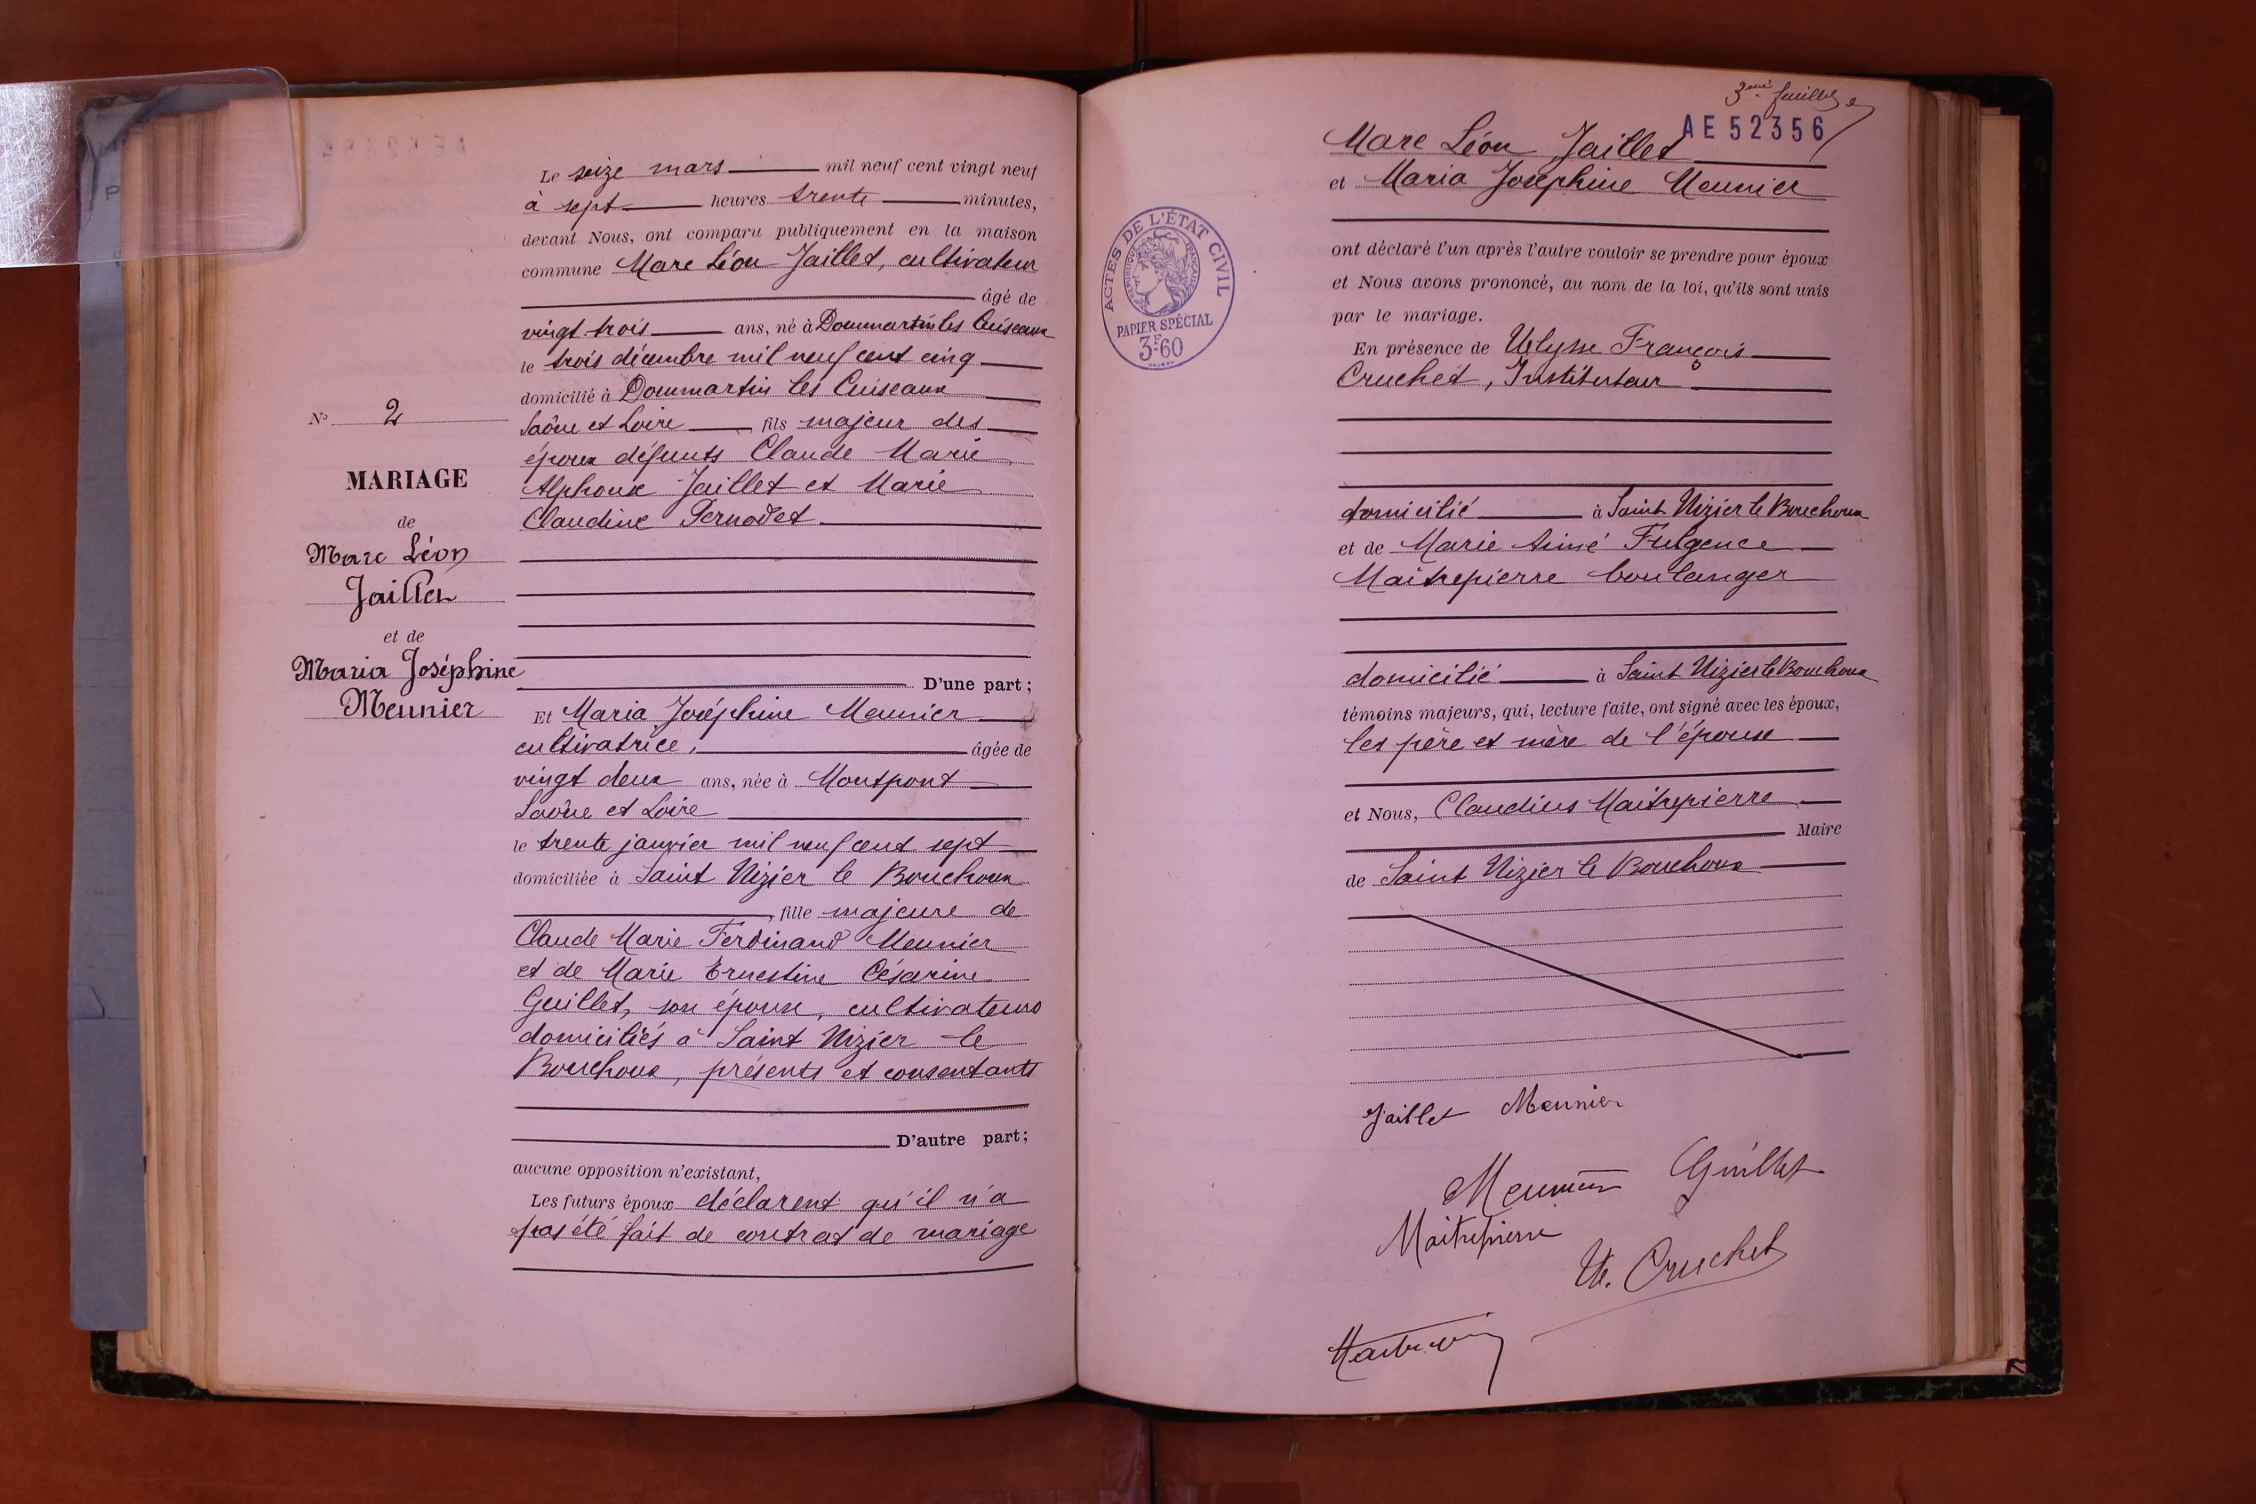 Le seize mars mil neuf cent vingt neuf
à sept heures trente minutes,
devant Nous, ont comparu publiquement en la maison
commune Marc Léon Jaillet, cultivateur
âgé de
vingt trois ans, né à Dommartin les Cuiseaux
le trois décembre mil neuf cent cinq
domicilié à Dommartin les Cuiseaux
Saône et Loire fils majeur des
époux défunts Claude Marie
Alphonse Jaillet et Marie
Claudine Pernodet
N° 2
MARIAGE
de
Marc Léon
Jaillet
et de
Maria Joséphine
Meunier
D'une part;
Et Maria Joséphine Meunier
cultivatrice, âgée de
vingt deux ans, née à Montpont
Saône et Loire
le trente janvier mil neuf cent sept
domiciliée à Saint Nizier le Bouchoux
, fille majeure de
Claude Marie Ferdinand Meunier
et de Marie Ernestine Césarine
Guillet, son épouse, cultivateurs
domiciliés à Saint Nizier le
Bouchoux, présents et consentants
D'autre part;
aucune opposition n'existant,
Les futurs époux déclarent qu'il n'a
pas été fait de contrat de mariage
3eme feuillet
AE 52356
Marc Léon Jaillet
et Maria Joséphine Meunier
ACTES DE L'ÉTAT CIVIL
RÉPUBLIQUE FRANÇAISE
PAPIER SPÉCIAL
3F60
ont déclaré l'un après l'autre vouloir se prendre pour époux
et Nous avons prononcé, au nom de la loi, qu'ils sont unis
par le mariage.
En présence de Ulysse François
Cruchet, Instituteur
domicilié à Saint Nizier le Bouchoux
et de Marie Aimé Fulgence
Maitrepierre boulanger
domicilié à Saint Nizier le Bouchoux
témoins majeurs, qui, lecture faite, ont signé avec les époux,
les père et mère de l'épouse
et Nous, Claudius Maitrepierre
Maire
de Saint Nizier le Bouchoux
Jaillet Meunier
Meunier Guillet
Maitrepierre
Ul. Cruchet